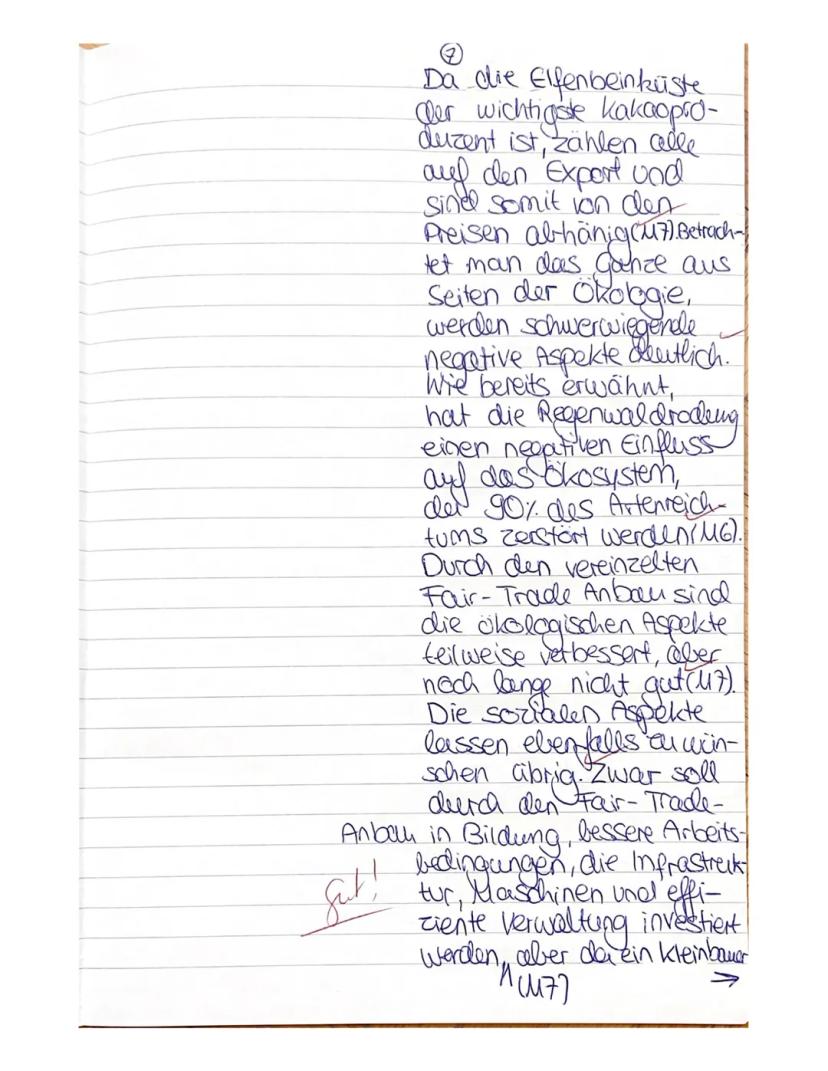 7
Da die Elfenbeinküste
der wichtigste Kakaopro-
duzent ist, zählen alle
auf den Export und
sind somit von den
Preisen abhänig (M7). Betrach-
tet man das Ganze aus
Seiten der Ökologie,
werden schwerwiegende
negative Aspekte deutlich.
Wie bereits erwähnt,
hat die Regenwaldrodung
einen negativen Einfluss
auf das Ökosystem,
da 90% des Artenreich-
tums zerstört werden (M6).
Durch den vereinzelten
Fair-Trade Anbau sind
die ökologischen Aspekte
teilweise verbessert, aber
noch lange nicht gut (M7).
Die sozialen Aspekte
lassen ebenfalls zu wün-
schen übrig. Zwar soll
durch den Fair-Trade-
Anbau in Bildung, bessere Arbeits-
bedingungen, die Infrastruk-
gut!
tur, Maschinen und effi-
ziente Verwaltung investiert
werden, aber da ein Kleinbauer
(M7)
→